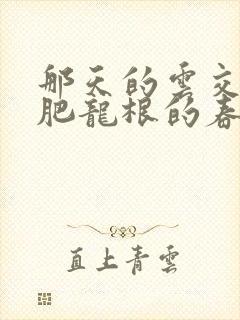 那天的雲交
肥龍根的春
直上青雲